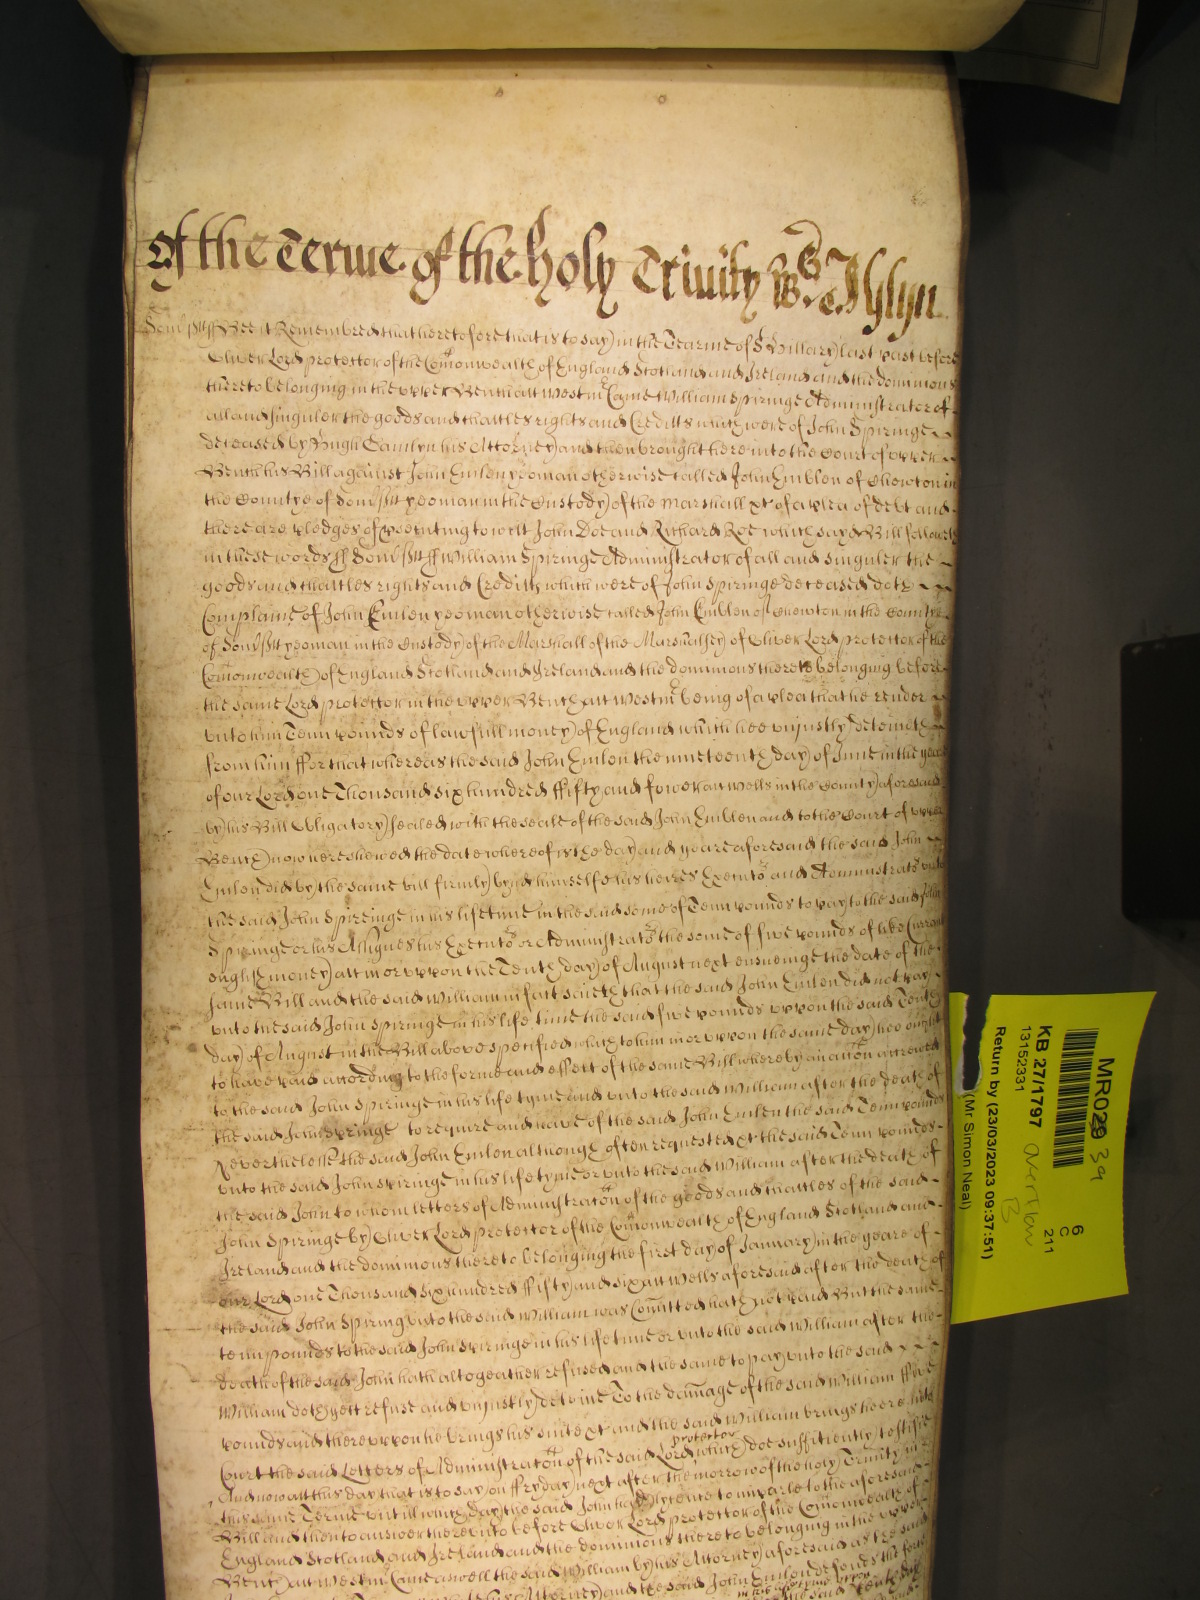 Of the Terme of the Holy Trinity
Bee it Remembred that heretofore that is to say in the Tearme of St Hillary last past before
Oliver Lord protector of the Comonwealth of England Scotland and Ireland and the dominions
thereto belonging in the upper Bench att Westm Came William Spiringe Administrator of
all and singuler the goods and chattles rights and Creditts which were of John Spiringe
deceased by Hugh Camlyn his Attorney and then brought here into the Court of upper
Bench his Bill against John Emlen yeoman otherwise called John Emblen of Chewton in
the Countye of yeoman in the Custody of the Marshall &c of a plea of debt and
there are pledges of prosecuting to witt John Doe and Richard Roe which sayd Bill followes
in these words ss William Spiringe Administrator of all and singuler the
goods and chattles rights and Creditts which were of John Spiringe deceased doth
Complaine of John Emlen yeoman otherwise called John Emblen of Chewton in the County
of yeoman in the Custody of the Marshall of the Marshalsey of Oliver Lord protector of the
Comonwealth of England Scotland and Ireland and the dominions thereto belonging before
the same Lord protector in the upper Bench att Westm being of a plea that he render
unto him Tenn pounds of lawfull money of England which hee unjustly deteineth
from him ffor that whereas the said John Emlen the nineteenth day of June in the yeare
of our Lord one Thousand six hundred ffifty and fower att Wells in the County aforesaid
by his Bill Obligatory sealed with the seale of the said John Emblen and to the Court of upper
Bench now here shewed the date whereof is the day and yeare aforesaid the said John
Emlen did by the same bill firmly bynd himselfe his heires Executors and Administrators unto
the said John Spiringe in his lifetime in the said some of Tenn pounds to pay to the said John
Spiringe or his Assignes his Executors or Administrators the some of five pounds of like Currant
english money att in or uppon the Tenth day of August next ensueinge the date of the
same Bill and the said William in fact saieth that the said John Emlen did not pay
unto the said John Spiringe in his life time the said five pounds uppon the said Tenth
day of August in the Bill above specified which to him in or uppon the same day hee ought
to have paid according to the forme and effect of the same Bill whereby an accon accrewed
to the said John Spiringe in his life tyme and unto the said William after the death of
the said John Spiringe to require and have of the said John Emlen the said Tenn pounds
Neverthelesse the said John Emlen although often requested &c the said Tenn pounds
unto the said John Spiringe in his life tyme or unto the said William after the death of
the said John to whom letters of Administration of the goods and chattles of the said
John Spiringe by Oliver Lord protector of the Comonwealth of England Scotland and
Ireland and the dominions thereto belonging the first day of January in the yeare of
our Lord one Thousand six hundred ffifty and six att Wells aforesaid after the death of
the said John Spiring unto the said William was Comitted hath not paid But the same
tenn pounds to the said John Spiringe in his life time or unto the said William after the
death of the said John hath altogeather refused and the same to pay unto the said
William doth yett refuse and unjustly deteine To the damage of the said William ffive
pounds and thereuppon he brings his suite &c and the said William brings heere into
Court the said Letters of Administration of the said Lord protector which doe sufficiently testifie
And now att this day that is to say on ffryday next after the morrow of the holy Trinity in
this same Terme untill which day the said John had lycence to imparle to the aforesaid
Bill and then to answer thereunto before Oliver Lord protector of the Comonwealth of
England Scotland and Ireland and the dominions thereto belonging in the upper
Bench att Westm Came aswell the said William by his Attorney aforesaid as the said
Attorney and the said John Emlen defends the force
MR029
39
KB 27/1797
13152331
6
C
211
Return by (23/03/2023 09:37:51)
(Mr Simon Neal)